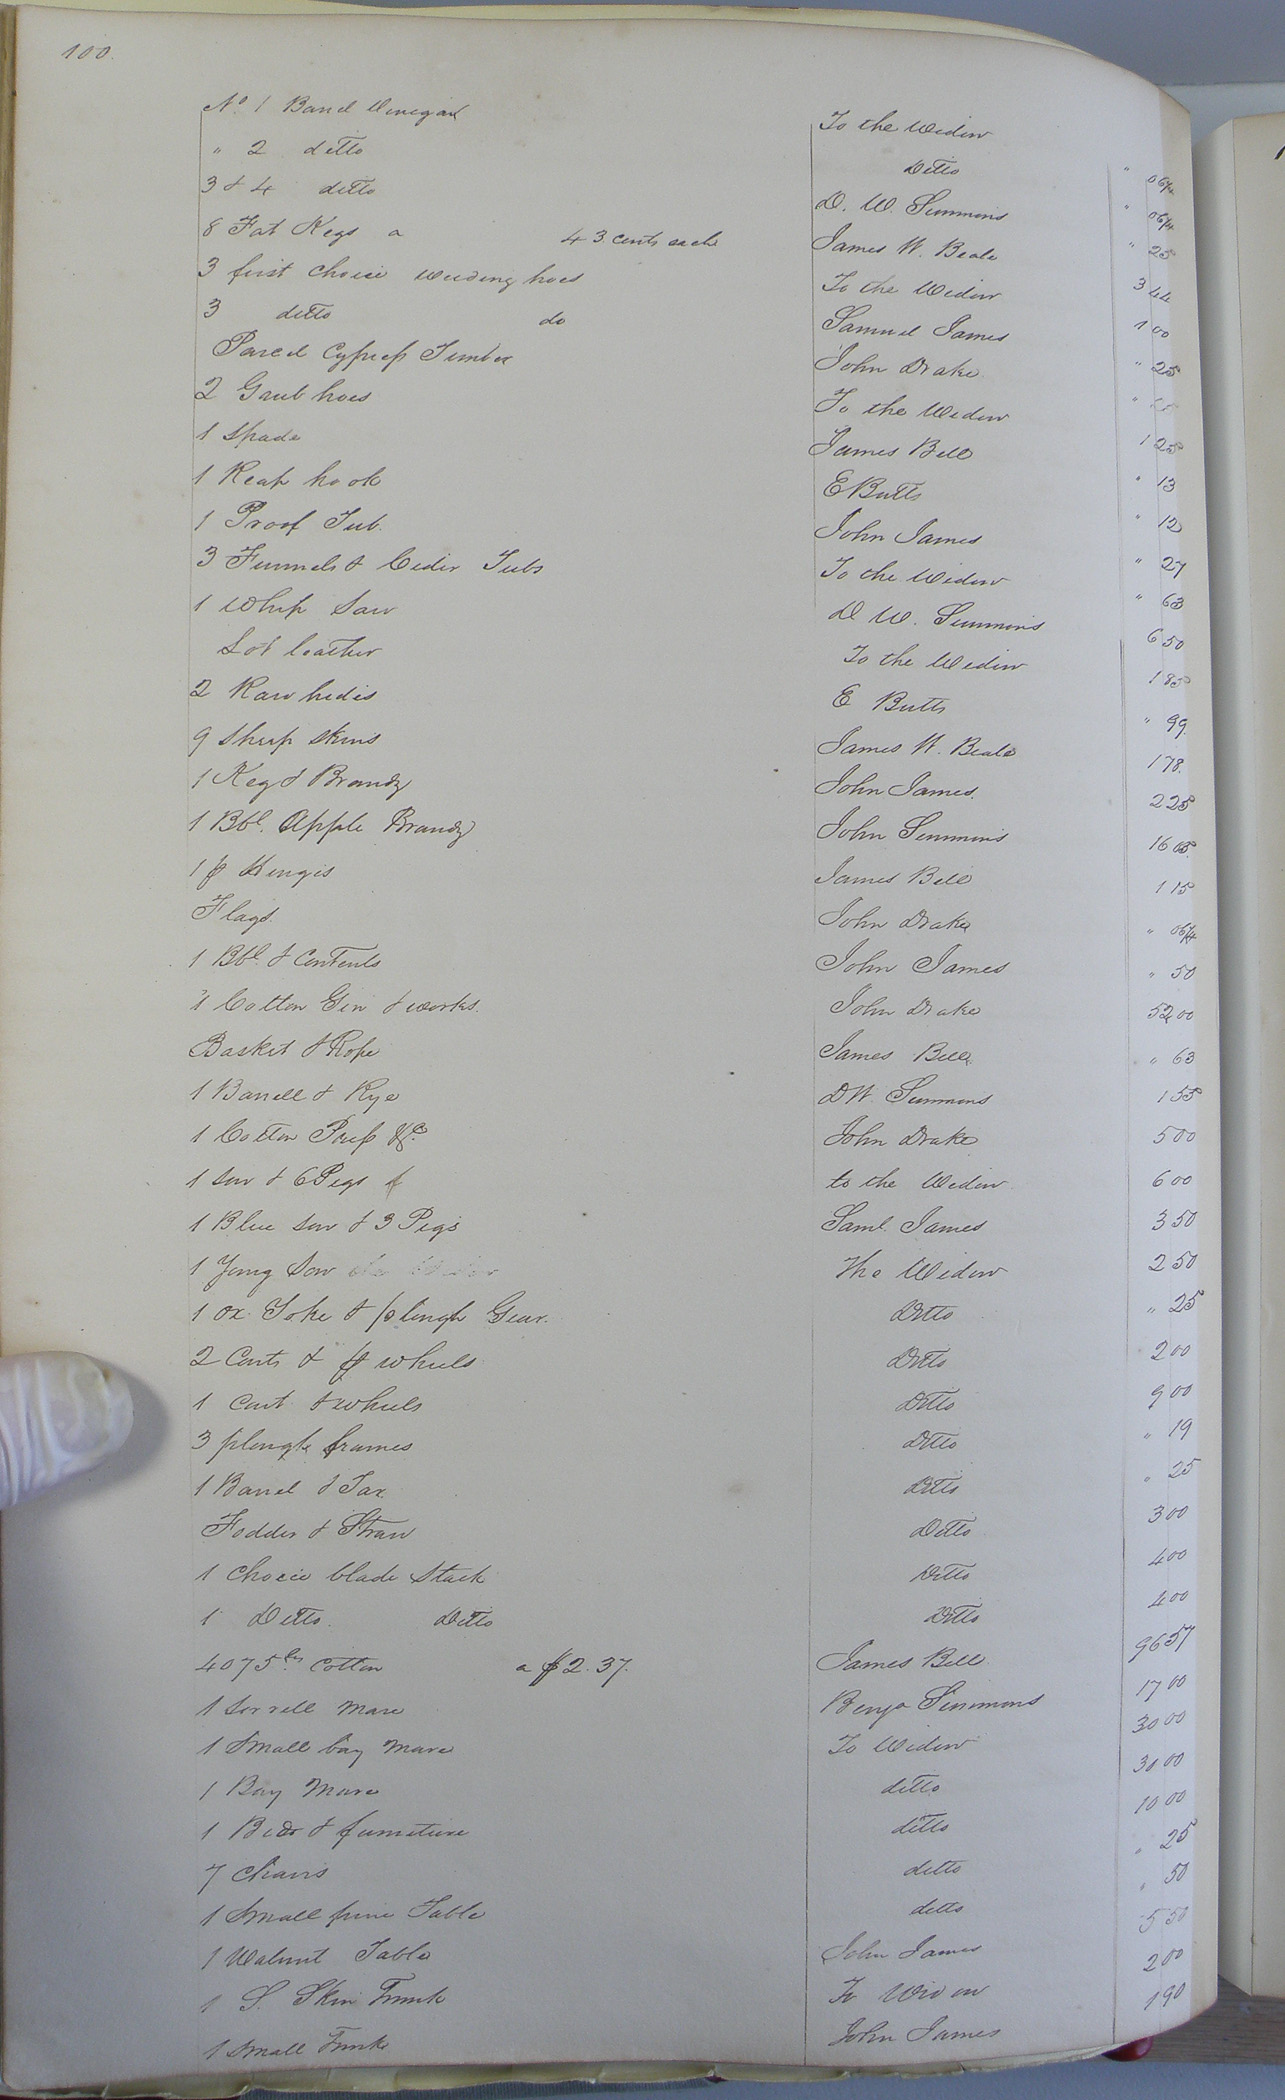 100.
No. 1 Barrel Vinegar To the Widow " 06¼
" 2 ditto Ditto " 06¼
3 & 4 ditto D. W. Simmons " 25
8 Fat Kegs a 43 cents each James W. Beale 3 44
3 first choice weeding hoes To the Widow 1 00
3 ditto do Samuel James " 25
Parcel Cypress Timber John Drake "
2 Grub hoes To the Widow 1 25
1 Spade James Bell " 13
1 Reap hook E Butts " 12
1 Proof Tub. John James " 27
3 Funnels & Cider Tubs To the Widow " 63
1 Whip Saw D W. Simmons 6 50
Lot leather To the Widow 1 85
2 Raw hides E Butts " 99
9 Sheep Skins James W. Beale 1 78.
1 Keg & Brandy John James. 2 25
1 Bbl. Apple Brandy John Simmons 16 05
1 p Hinges James Bell 1 15
Flags. John Drake " 06¼
1 Bbl. & Contents John James " 50
1 Cotton Gin & works. John Drake 52 00
Basket & Rope James Bell " 63
1 Barrell & Rye D W. Simmons 1 55
1 Cotton Press &c. John Drake 5 00
1 Sow & 6 Pigs to the Widow 6 00
1 Blue Sow & 3 Pigs Saml. James 3 50
1 Yong Sow The Widow 2 50
1 ox Yoke & plough Gear. Ditto " 25
2 Carts & p wheels Ditto 2 00
1 Cart & wheels Ditto 9 00
3 plough frames Ditto " 19
1 Barrel & Tar Ditto " 25
Fodder & Straw Ditto 3 00
1 Choice blade Stack Ditto 4 00
1 Ditto. Ditto Ditto 4 00
4075 lbs. Cotton a $2.37. James Bell 96 57
1 Sorrell Mare Benja Simmons 17 00
1 Small bay Mare To Widow 30 00
1 Bay Mare ditto 30 00
1 Bed & furniture ditto 10 00
7 Chairs ditto " 25
1 Small pine Table ditto " 50
1 Walnut Table John James 5 50
1 S. Skin Trunk To Widow 2 00
1 Small Trunk John James 1 90